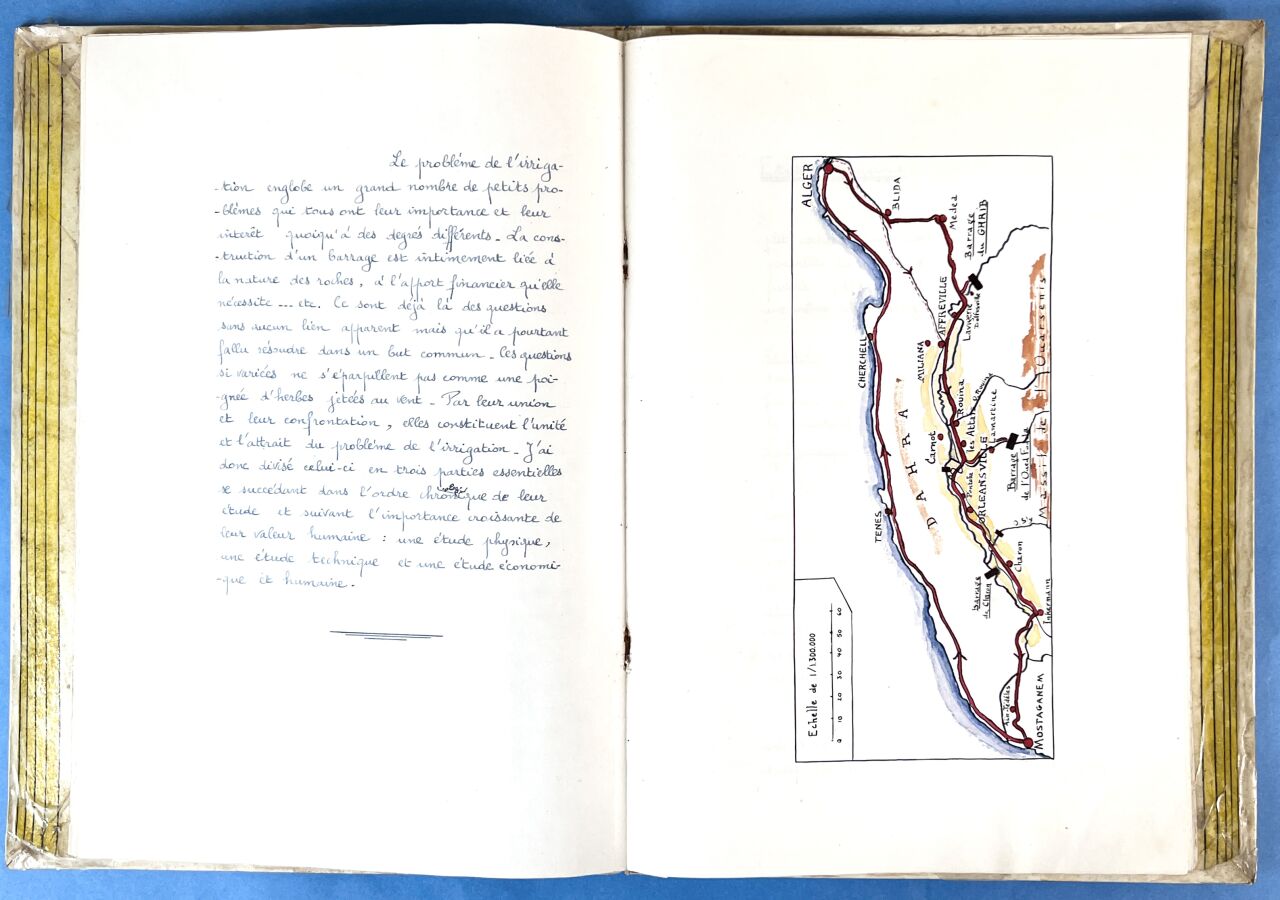 Le problème de l'irriga-
-tion englobe un grand nombre de petits pro-
-blèmes qui tous ont leur importance et leur
intérêt quoiqu'à des degrés différents. La cons-
-truction d'un barrage est intimement liée à
la nature des roches, à l'apport financier qu'elle
nécessite ... etc. Ce sont déjà là des questions
sans aucun lien apparent mais qu'il a pourtant
fallu résoudre dans un but commun. Ces questions
si variées ne s'éparpillent pas comme une poi-
-gnée d'herbes jetées au vent. Par leur union
et leur confrontation, elles constituent l'unité
et l'attrait du problème de l'irrigation. J'ai
donc divisé celui-ci en trois parties essentielles
se succédant dans l'ordre chronologique de leur
étude et suivant l'importance croissante de
leur valeur humaine : une étude physique,
une étude technique et une étude économi-
-que et humaine.
ALGER
BLIDA
Médéa
Barrage
du GHRIB
AFFREVILLE
Lavigerie
Dolfusville
MILIANA
CHERCHELL
Rouina
O. Rouina
les Attafs
Lamartine
Carnot
DAHRA
Barrage
de l'Oued Fodda
Massif de l'Ouarsenis
ORLEANSVILLE
Pontéba
TENES
Charon
Barrage
de Charon
Inkermann
Ain-Tedeles
MOSTAGANEM
Echelle de 1/1300.000
0 10 20 30 40 50 60